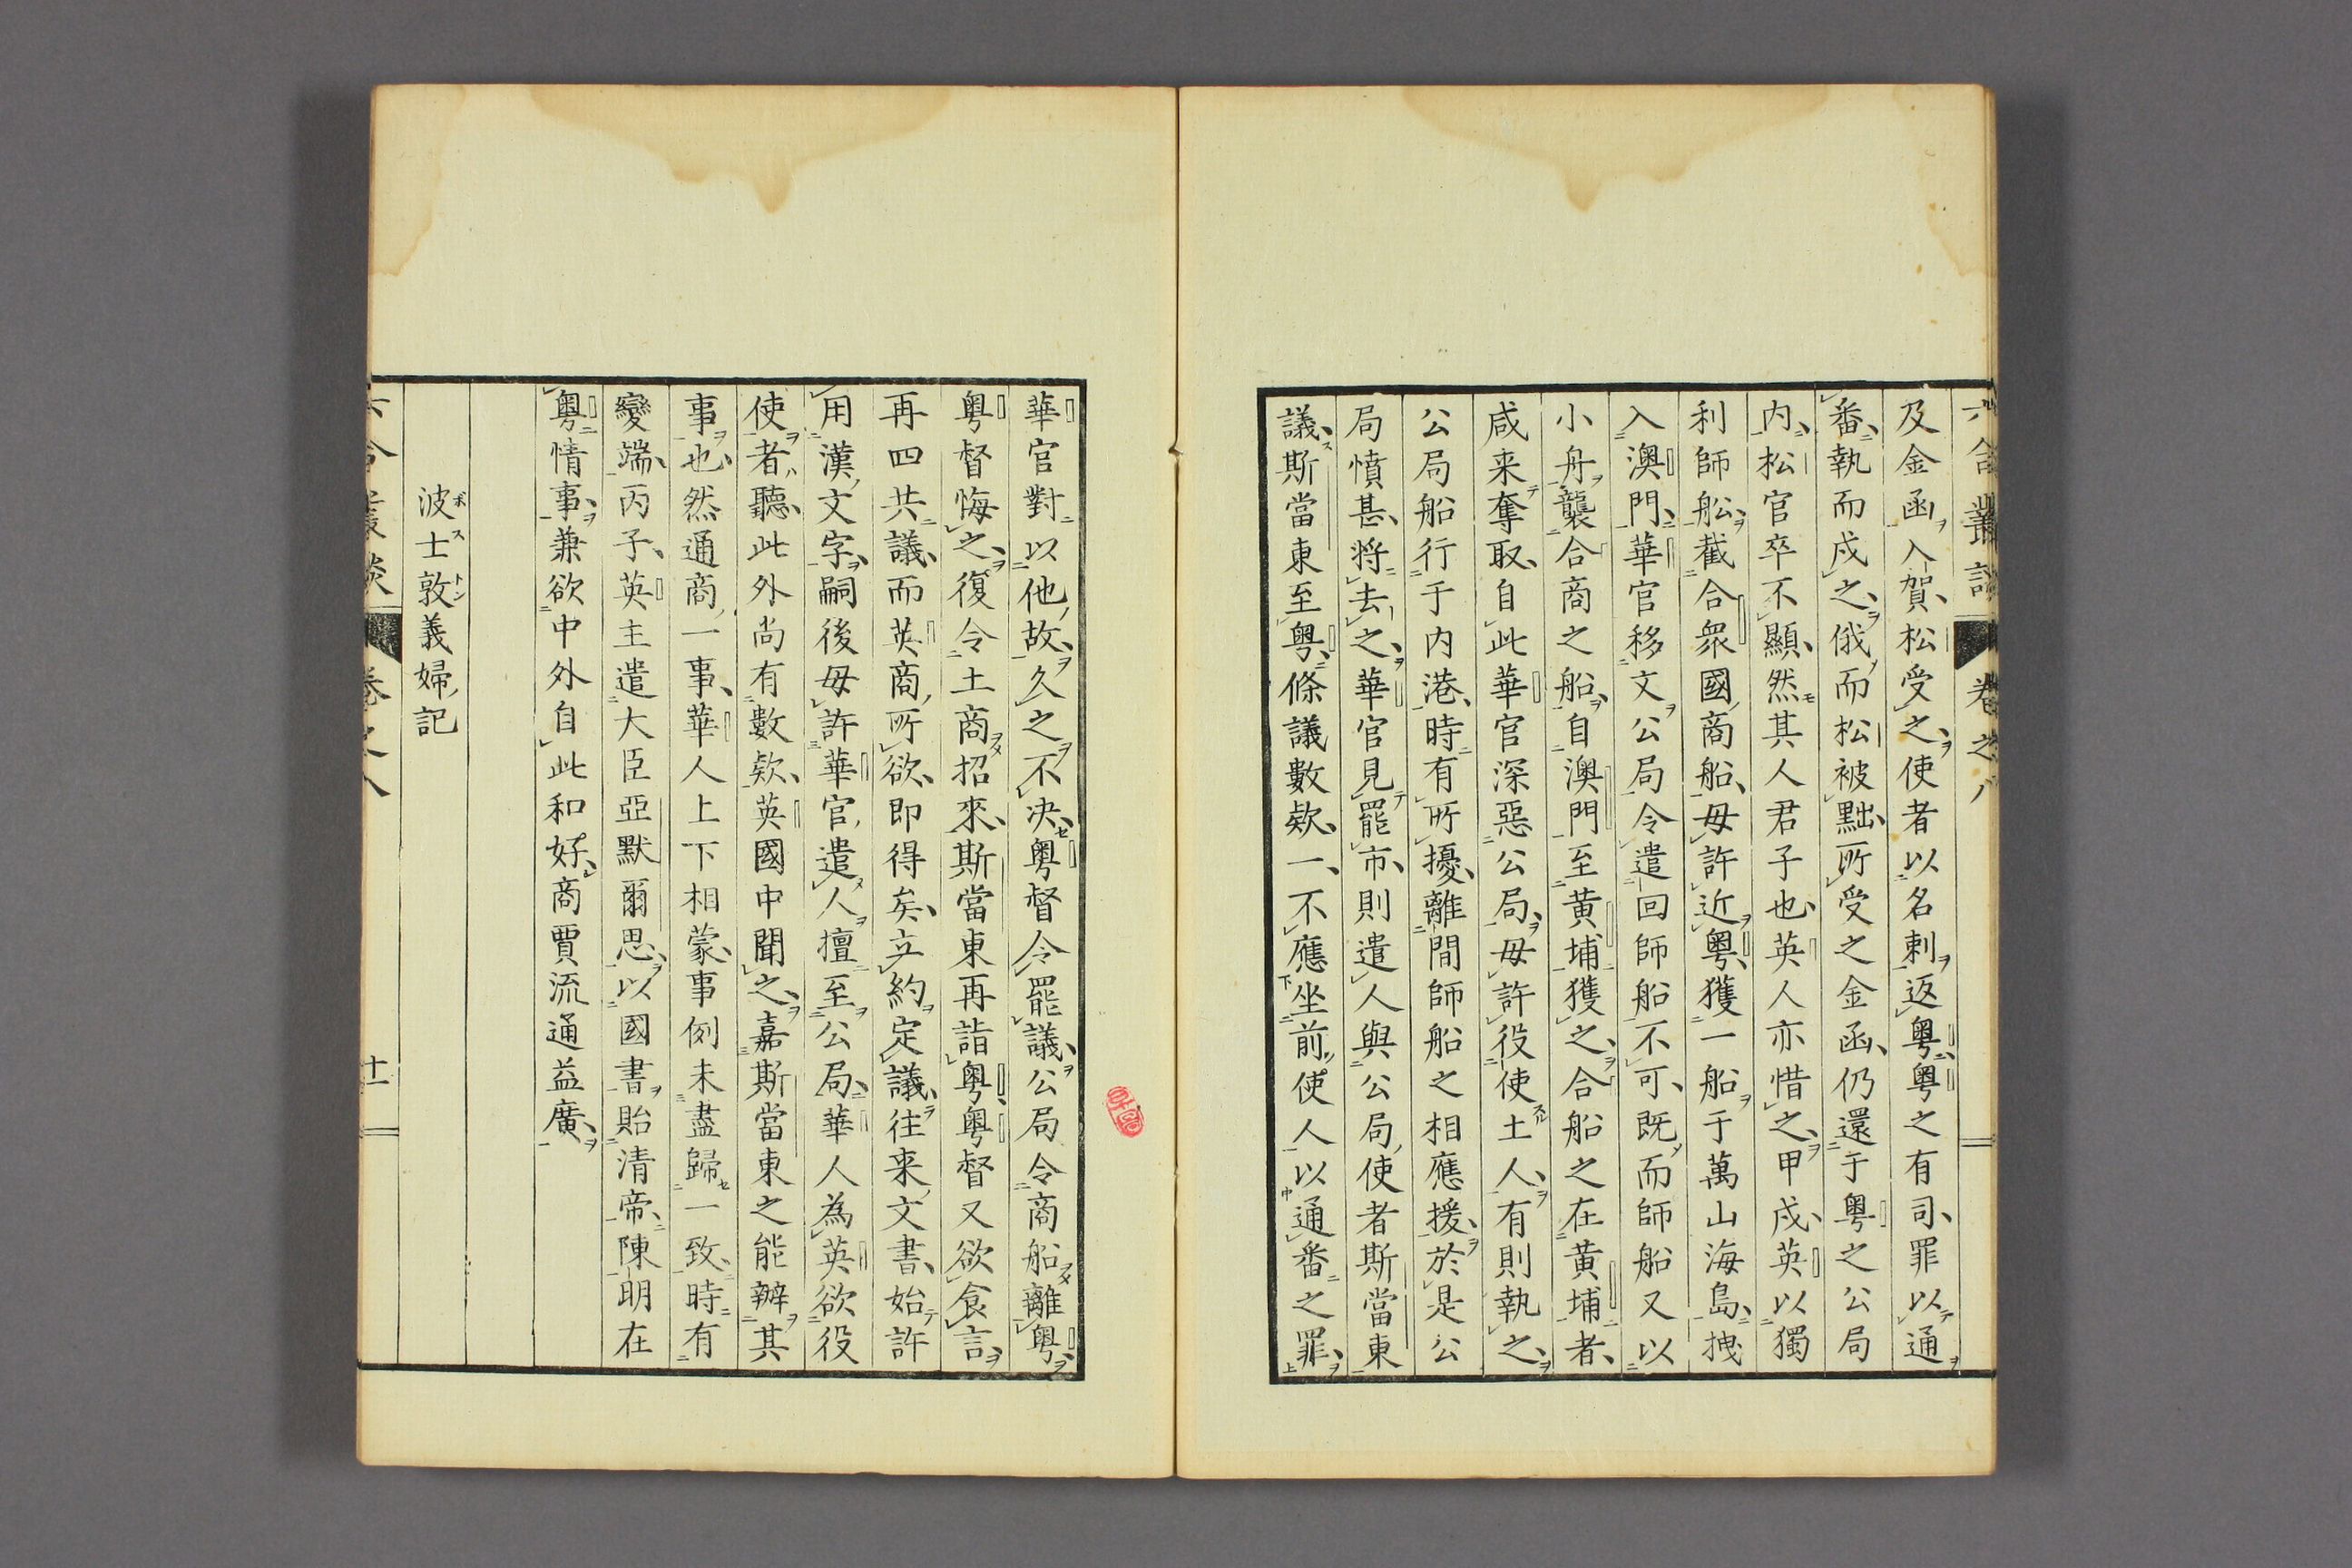 六合叢談 卷之八
及金函入賀松受之使者以名刺返粤粤之有司罪以通
番執而戍之俄而松被黜所受之金函仍還于粤之公局
内松官卒不顯然其人君子也英人亦惜之甲戌英以獨
利師船截合衆國商船毋許近粤獲一船于萬山海島拽
入澳門華官移文公局令遣回師船不可既而師船又以
小舟襲合商之船自澳門至黄埔獲之合船之在黄埔者
咸来奪取自此華官深惡公局毋許役使土人有則執之
公局船行于内港時有所擾離間師船之相應援於是公
局憤甚將去之華官見罷市則遣人與公局使者斯當東
議斯當東至粤條議數欵一不應坐前使人以通番之罪
華官對以他故久之不决粤督令罷議公局令商船離粤
粤督悔之復令土商招來斯當東再詣粤粤督又欲食言
再四共議而英商所欲即得矣立約定議往来文書始許
用漢文字嗣後毋許華官遣人擅至公局華人為英欲役
使者聽此外尚有數欵英國中聞之嘉斯當東之能辦其
事也然通商一事華人上下相蒙事例未盡歸一致時有
變端丙子英主遣大臣亞默爾思以國書貽清帝陳明在
粤情事兼欲中外自此和好商賈流通益廣
波士敦義婦記
六合叢談 卷之八 十一